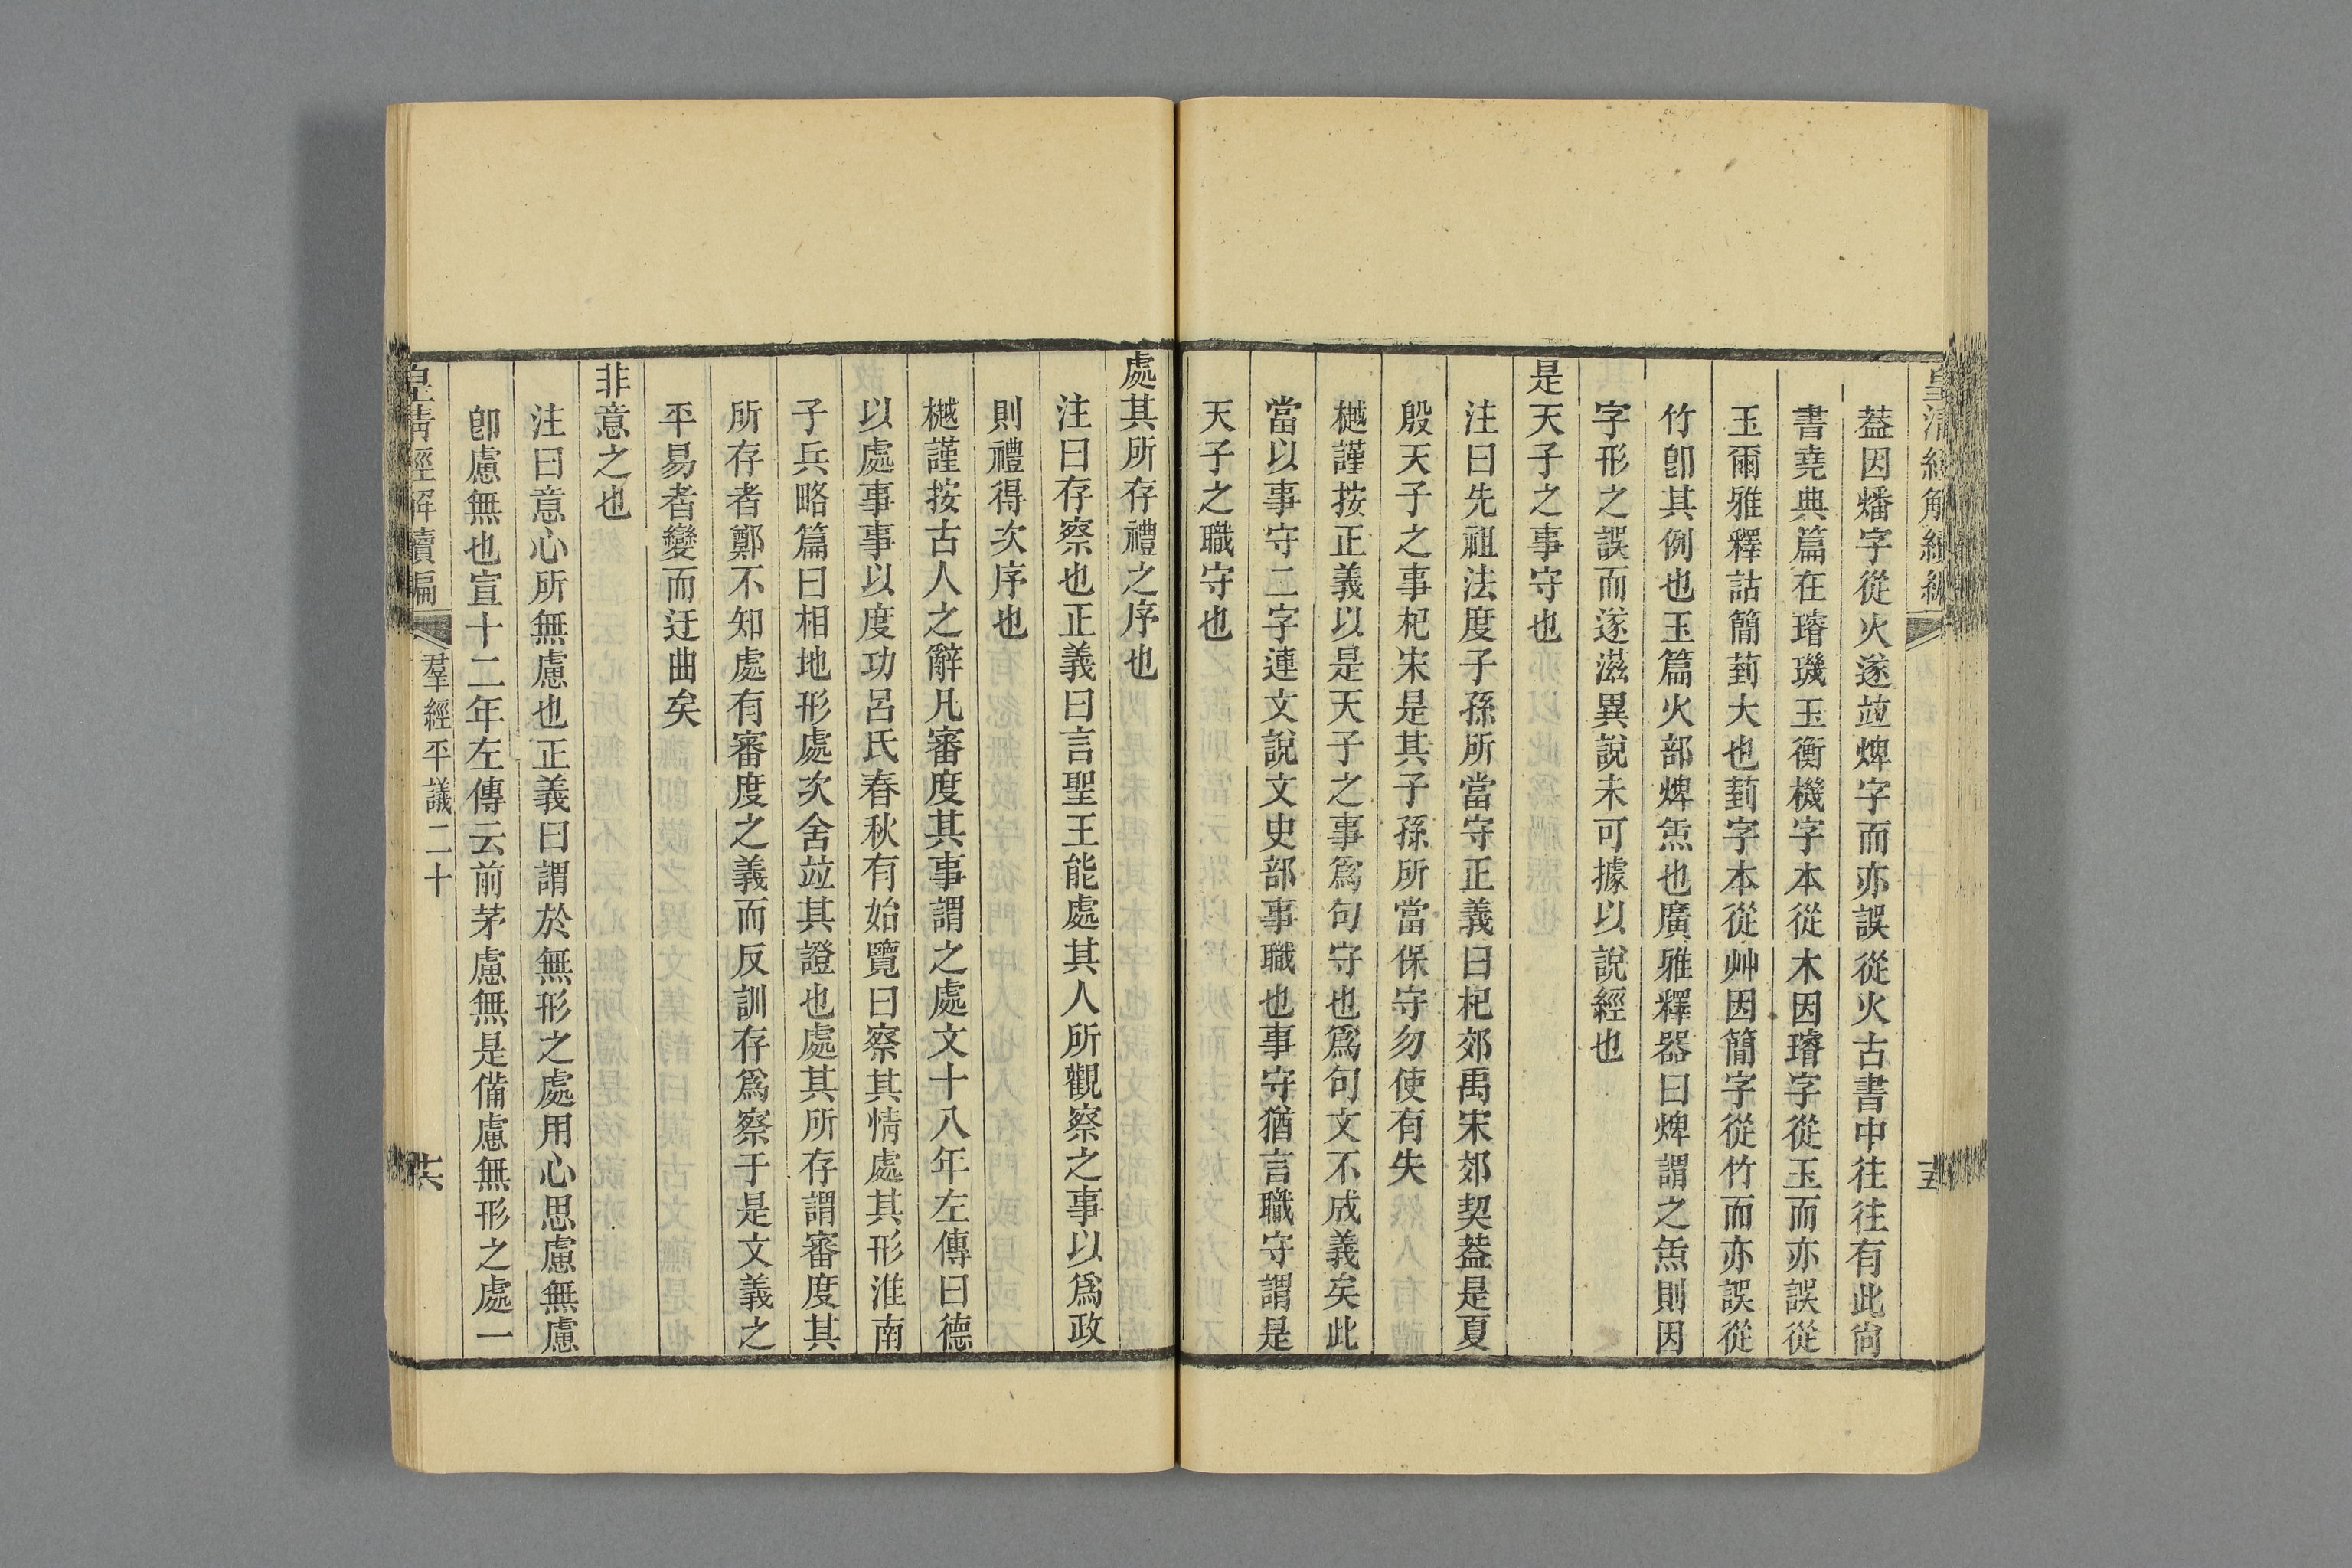 皇清經解續編
十五
葢因燔字從火遂竝焷字而亦誤從火古書中往往有此尙
書堯典篇在璿璣玉衡機字本從木因璿字從玉而亦誤從
玉爾雅釋詁簡菿大也菿字本從艸因簡字從竹而亦誤從
竹卽其例也玉篇火部焷炰也廣雅釋器曰焷謂之炰則因
字形之誤而遂滋異說未可據以說經也
是天子之事守也
注曰先祖法度子孫所當守正義曰杞郊禹宋郊契葢是夏
殷天子之事杞宋是其子孫所當保守勿使有失
樾謹按正義以是天子之事爲句守也爲句文不成義矣此
當以事守二字連文說文史部事職也事守猶言職守謂是
天子之職守也
處其所存禮之序也
注曰存察也正義曰言聖王能處其人所觀察之事以爲政
則禮得次序也
樾謹按古人之辭凡審度其事謂之處文十八年左傳曰德
以處事事以度功呂氏春秋有始覽曰察其情處其形淮南
子兵略篇曰相地形處次舍竝其證也處其所存謂審度其
所存者鄭不知處有審度之義而反訓存爲察于是文義之
平易者變而迂曲矣
非意之也
注曰意心所無慮也正義曰謂於無形之處用心思慮無慮
卽慮無也宣十二年左傳云前茅慮無是備慮無形之處一
皇清經解續編
羣經平議二十
十六